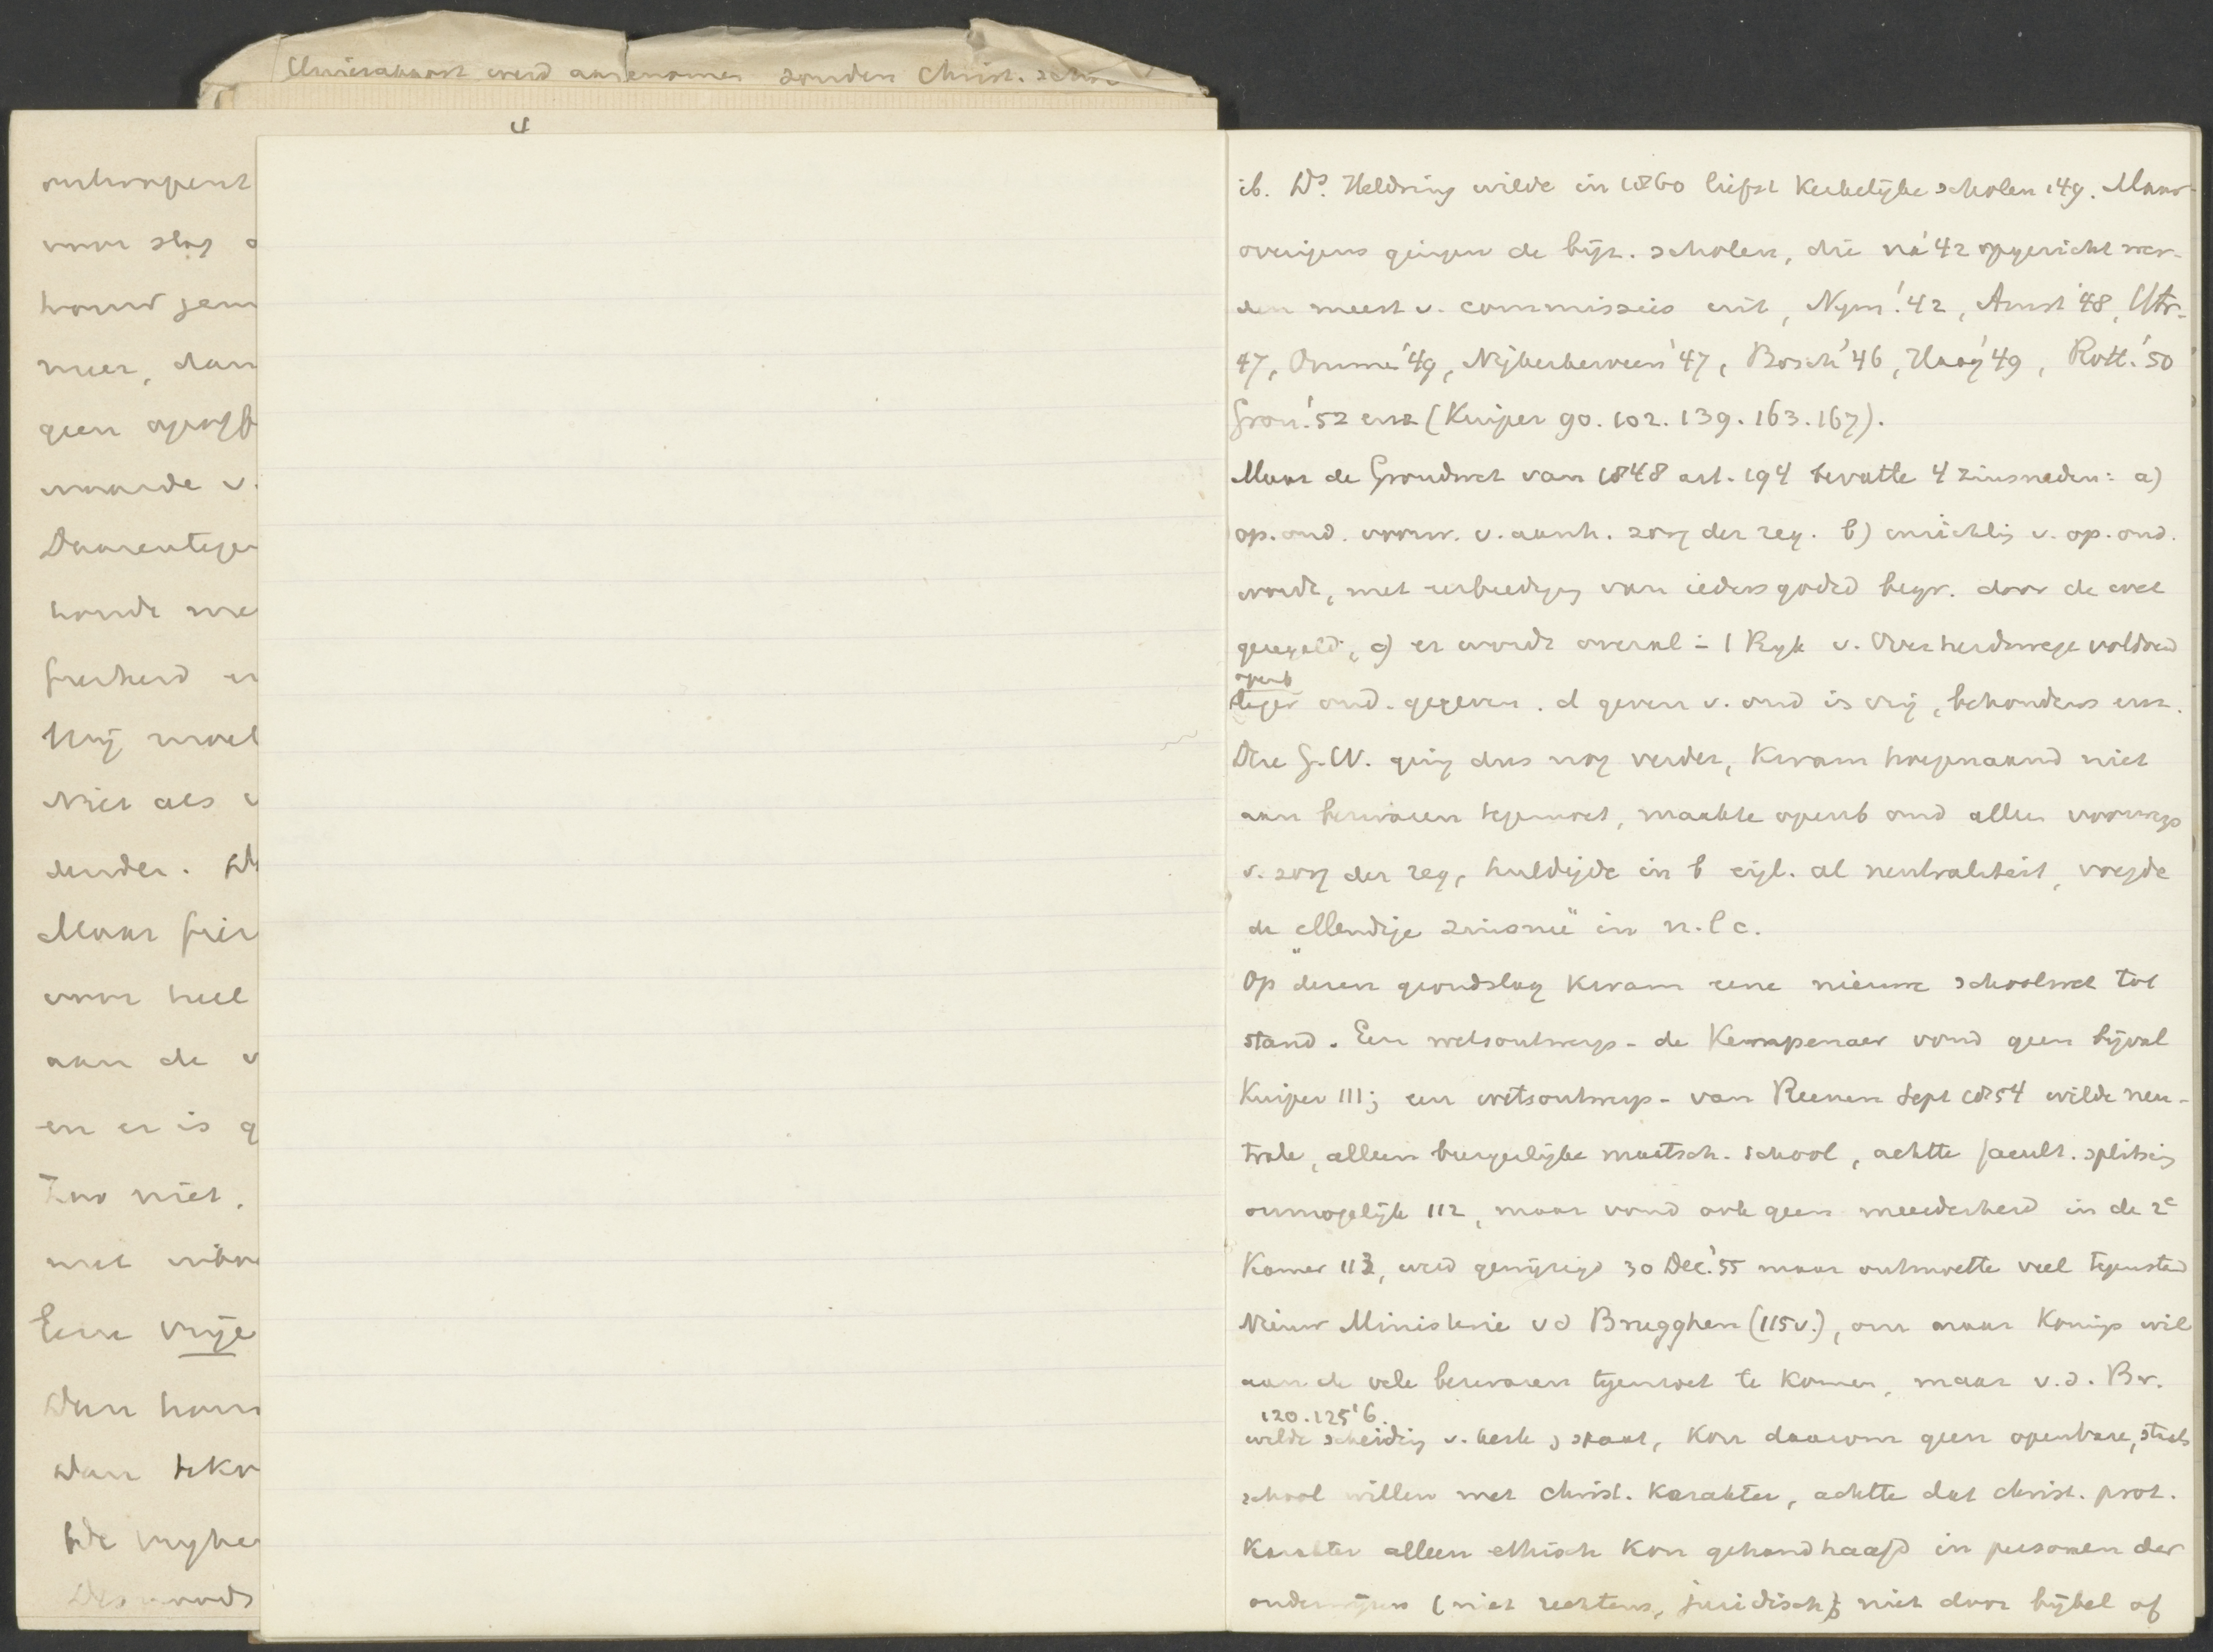 Christ.
4
voor slag
meer, dan
geen
waarde v.
Daarentegen
Hij moet
Niet als
Maar
voor heel
aan de v
en er is g
niet.
met
Eene vrije
Dan
Dan
De vryhe
ib. Ds. Heldring wilde in 1860 liefst kerkelijke scholen 149. Maar
overigens gingen de bijz. scholen, die na '42 opgericht wer-
den meest v. commissies uit, Nym. '42, Amst '48, Utr.
47, Ommen '49, Nijkerkerveen '47, Bosch '46, Haag '49, Rott. '50
Gron. '52 enz (Kuiper 90. 102. 139. 163. 167).
Maar de Grondwet van 1848 art. 194 bevatte 4 zinsneden: a)
op. ond. voorw. v. aanh. zorg der reg. b) inrichtg v. op. ond.
wordt, met eerbiediging van ieders godsd begr. door de wet
geregeld, c) er wordt overal in 't Ryk v. Overheidswege voldoend
openb
lager ond. gegeven. d geven v. ond is vrij, behoudens enz.
Die G.W. ging dus nog verder, kwam hoegenaamd niet
aan bezwaren tegemoet, maakte openb ond alleen voorwp
v. zorg der reg, huldigde in b eigl. al neutraliteit, voegde
de „ellendige zinsneê" in n.l c.
Op dezen grondslag kwam eene nieuwe schoolwet tot
stand. Een wetsontwerp - de Kempenaer vond geen bijval
Kuiper 111; een wetsontwerp - van Reenen Sept 1854 wilde neu-
trale, alleen burgerlijke maatsch. school, achtte facult. splitsing
onmogelijk 112, maar vond ook geen meerderheid in de 2e
Kamer 113, werd gewijzigd 30 Dec. '55 maar ontmoette veel tegenstand
Nieuw Ministerie vd Brugghen (115v.), om naar Konings wil
aan de vele bezwaren tegemoet te komen, maar v.d. Br.
120. 125'6.
wilde scheiding v. kerk & staat, kon daarom geen openbare, staats
school willen met christ. karakter, achtte dat christ. prot.
karakter alleen ethisch kon gehandhaafd in personen der
onderwijzers (niet rechtens, juridisch) niet door bijbel of